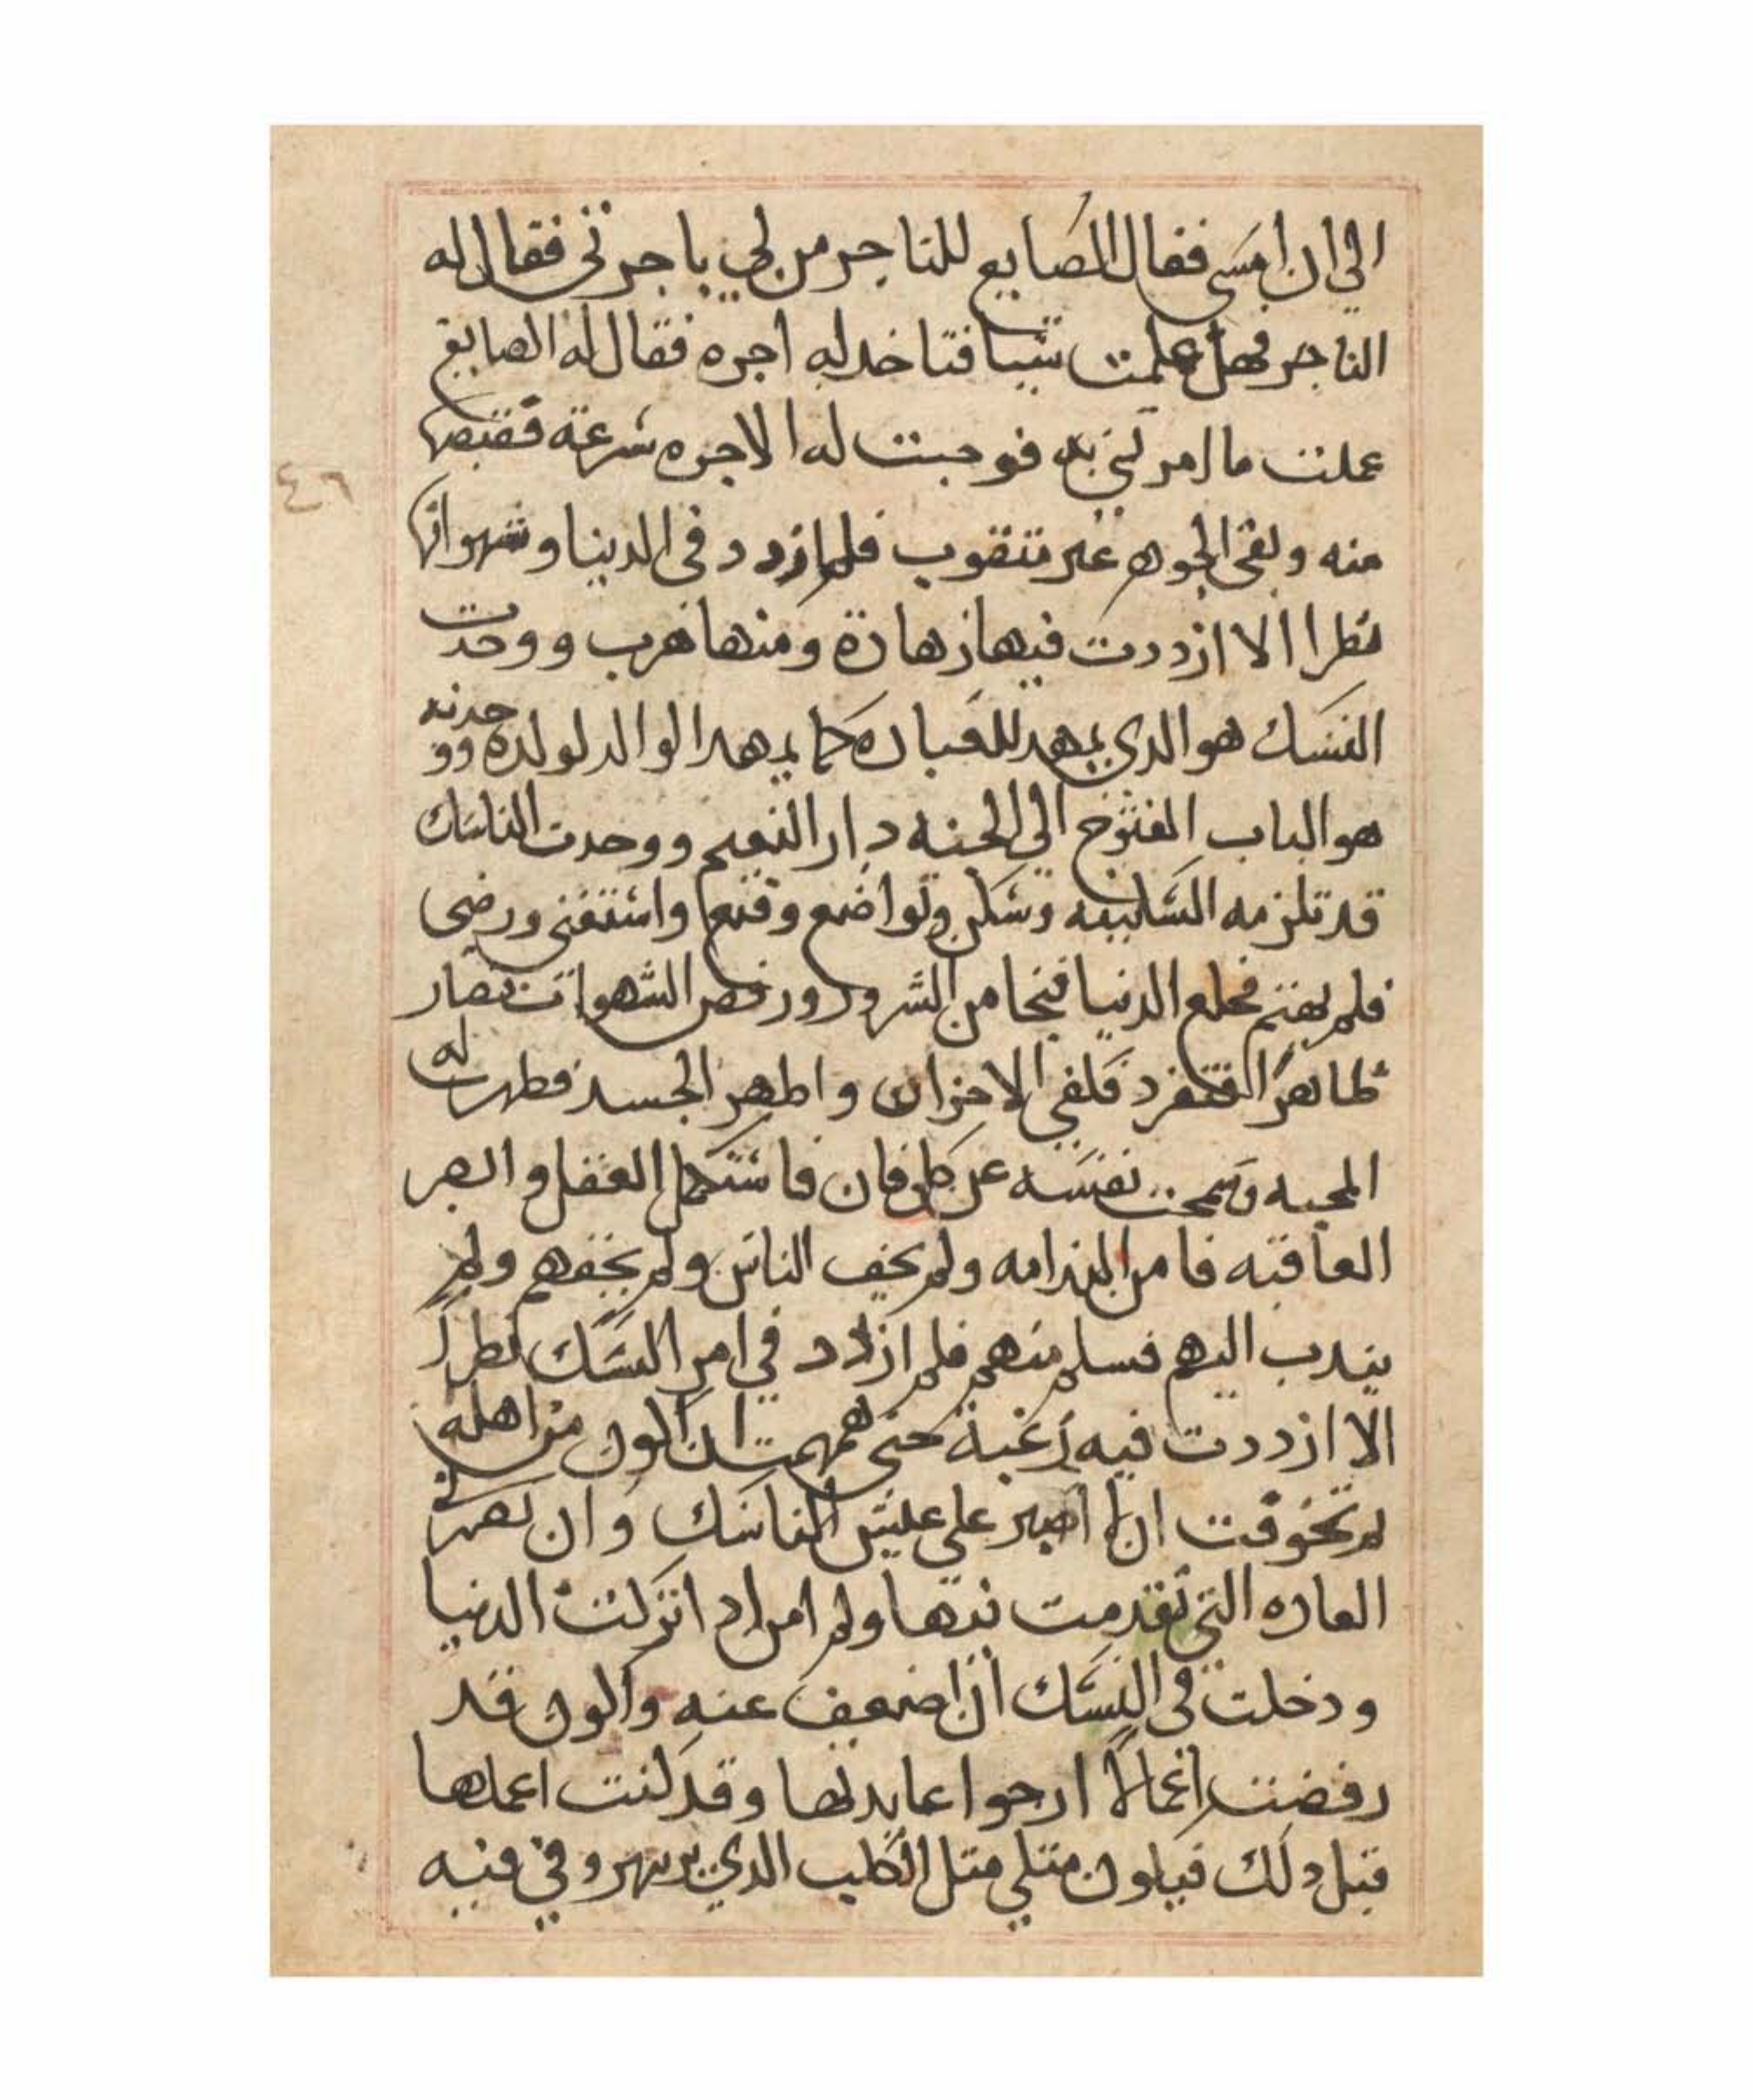 الي ان امسى فقال الصايع للتاجر من لي باجرتي فقال له
التاجر فهل عملت شيا فتاخد له اجره فقال له الصايغ
عملت ما امرتني به فوجبت له الاجره شرعة فقبضها
منه وبقى الجوهر غير متقوب فلم ازدد في الدنيا وشهواتها
نظرا الا ازددت فيها زهادة ومنها هرب ووجدت
النسك هو الدي يمهد للعباده كما يمهد الوالد لولده ووجدته
هو الباب المفتوح الي الجنه دار النعيم ووجدت الناسك
قد تلزمه السكينه وشكر وتواضع وقنع واستغنى ورضى
فلم يهتم فخلع الدنيا فنجا من الشرور ورفض الشهوات فصار
طاهرا انفرد فلفي الاحزان واطهر الجسد فظهرت له
المحبه وسمحت نفسه عن كل فان فاستكمل العقل وابصر
العاقبه فامن الندامه ولم يخف الناس ولم يخفهم ولم
يندب اليهم فسلم منهم فلم ازدد في امر النسك نظرا
الا ازددت فيه رغبة حتى هممت ان اكون من اهله
لم تخوفت ان لا اصبر على عيش الناسك وان تضرني
العاده التي تقدمت نيتها ولم امن اد اتركت الدنيا
ودخلت في النسك ان اضعف عنه واكون قد
رفضت اعمالا ارجوا عايدتها وقد كنت اعملها
قبل دلك فيكون متلي متل الكلب الدي بر بنهر وفي فيه
٤٦